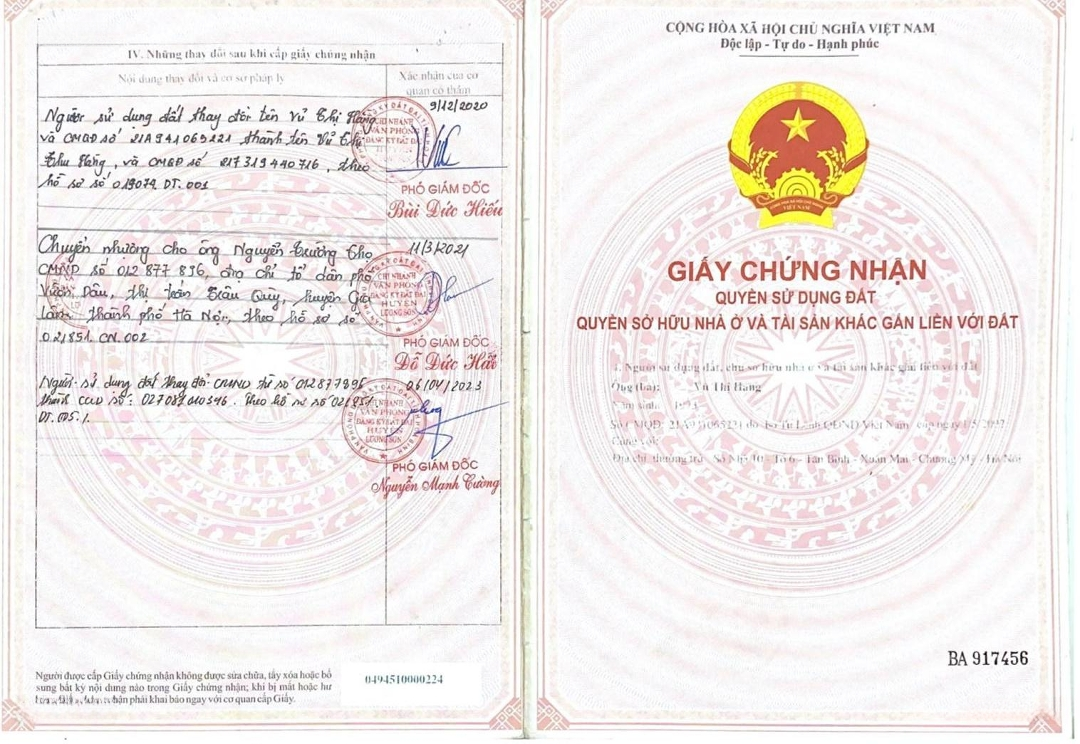 IV. Những thay đổi sau khi cấp giấy chứng nhận
Nội dung thay đổi và cơ sở pháp lý
Xác nhận của cơ
quan có thẩm
Người sử dụng đất thay đổi tên Vũ Thị Hằng
và CMQĐ số 21A941065121 thành tên Vũ Thị
Thu Hằng, và CMQĐ số 217319440716, theo
hồ sơ số 019074.DT.001
9/12/2020
CHI NHÁNH
VĂN PHÒNG
ĐĂNG KÝ ĐẤT ĐAI
PHÓ GIÁM ĐỐC
Bùi Đức Hiếu
Chuyển nhượng cho ông Nguyễn Trường Thọ
CMND số 012 877 896, địa chỉ tổ dân phố
Vườn Dâu, thị trấn Trâu Quỳ, huyện Gia
Lâm, thành phố Hà Nội, theo hồ sơ số
021851.CN.002
11/3/2021
CHI NHÁNH
VĂN PHÒNG
ĐĂNG KÝ ĐẤT ĐAI
HUYỆN
LƯƠNG SƠN
PHÓ GIÁM ĐỐC
Đỗ Đức Hải
Người sử dụng đất thay đổi CMND từ số 012877896
thành CCCD số: 027087010346. Theo hồ sơ số 021851.
DT.005./.
06/04/2023
CHI NHÁNH
VĂN PHÒNG
ĐĂNG KÝ ĐẤT ĐAI
HUYỆN
LƯƠNG SƠN
PHÓ GIÁM ĐỐC
Nguyễn Mạnh Cường
Người được cấp Giấy chứng nhận không được sửa chữa, tẩy xóa hoặc bổ
sung bất kỳ nội dung nào trong Giấy chứng nhận; khi bị mất hoặc hư
hỏng Giấy chứng nhận phải khai báo ngay với cơ quan cấp Giấy.
0494510000224
CỘNG HÒA XÃ HỘI CHỦ NGHĨA VIỆT NAM
Độc lập - Tự do - Hạnh phúc
VIỆT NAM
GIẤY CHỨNG NHẬN
QUYỀN SỬ DỤNG ĐẤT
QUYỀN SỞ HỮU NHÀ Ở VÀ TÀI SẢN KHÁC GẮN LIỀN VỚI ĐẤT
I. Người sử dụng đất, chủ sở hữu nhà ở và tài sản khác gắn liền với đất
Ông (bà): Vũ Thị Hằng
Năm sinh: 1973
Số CMQĐ: 21A941065121 do Bộ Tư Lệnh QĐND Việt Nam cấp ngày
Cùng với:
Địa chỉ thường trú: Số Nhà 10 - Tổ 6 - Tân Bình - Xuân Mai - Chương Mỹ - Hà Nội
BA 917456